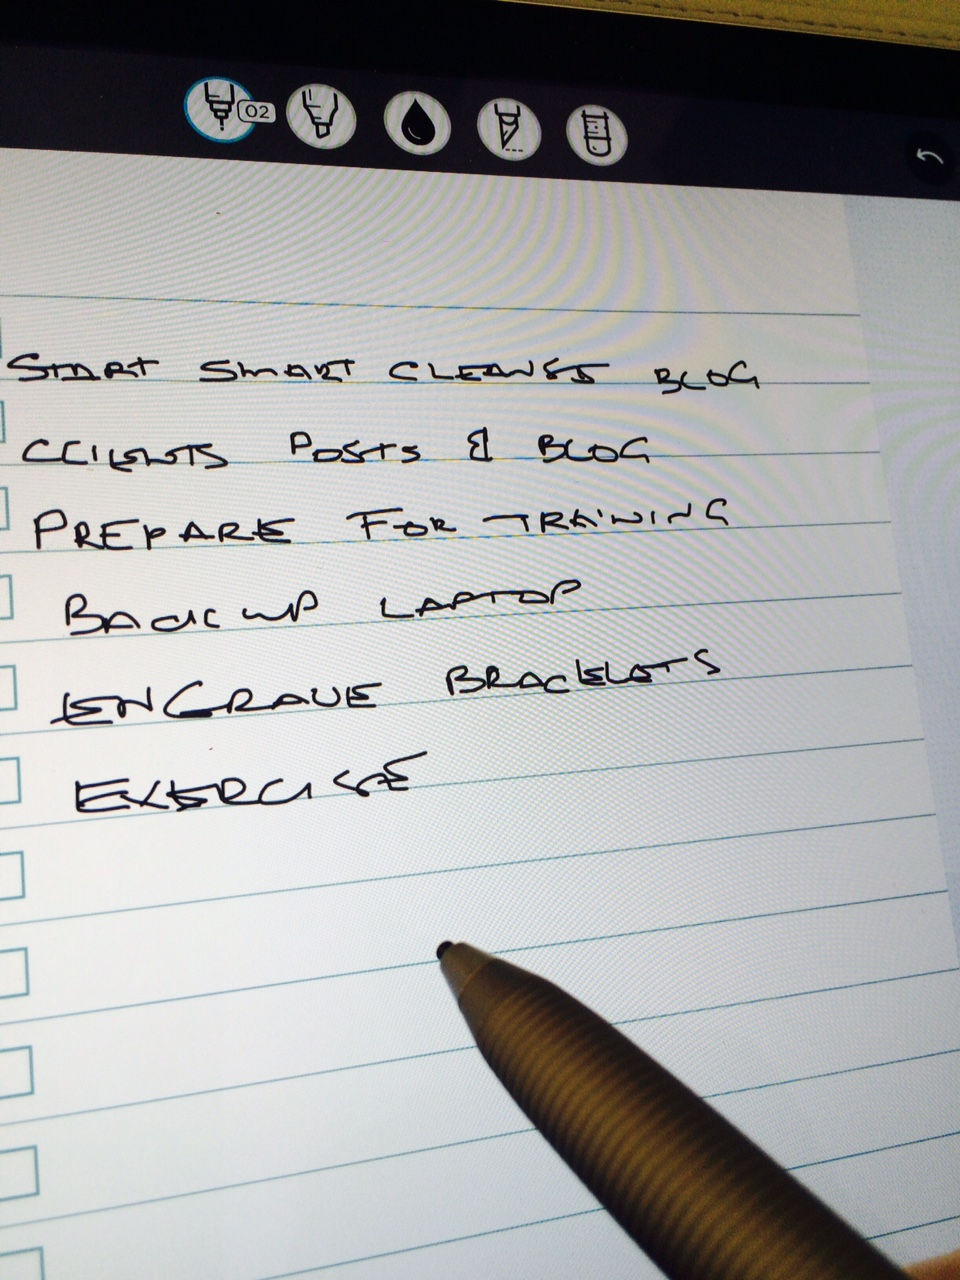 02
START SMART CLEANSE BLOG
CLIENTS POSTS & BLOG
PREPARE FOR TRAINING
BACK UP LAPTOP
ENGRAVE BRACELETS
EXERCISE